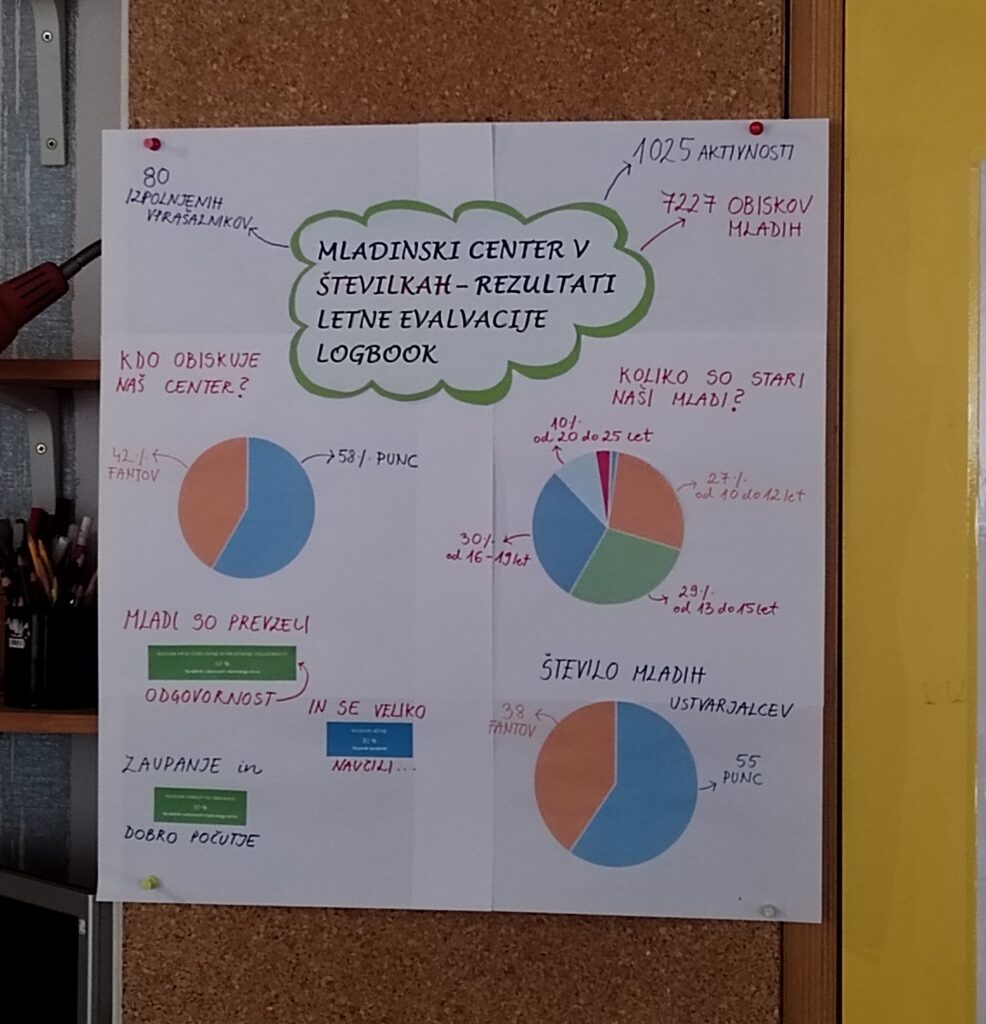 80
IZPOLNJENIH
VPRAŠALNIKOV
1025 AKTIVNOSTI
7227 OBISKOV
MLADIH
MLADINSKI CENTER V
ŠTEVILKAH – REZULTATI
LETNE EVALVACIJE
LOGBOOK
KDO OBISKUJE
NAŠ CENTER?
42% FANTOV
58% PUNC
KOLIKO SO STARI
NAŠI MLADI?
10%
od 20 do 25 let
27%
od 10 do 12 let
30%
od 16 - 19 let
29%
od 13 do 15 let
MLADI SO PREVZELI
ODGOVORNOST
IN SE VELIKO
NAUČILI...
ZAUPANJE in
DOBRO POČUTJE
ŠTEVILO MLADIH
USTVARJALCEV
38
FANTOV
55
PUNC